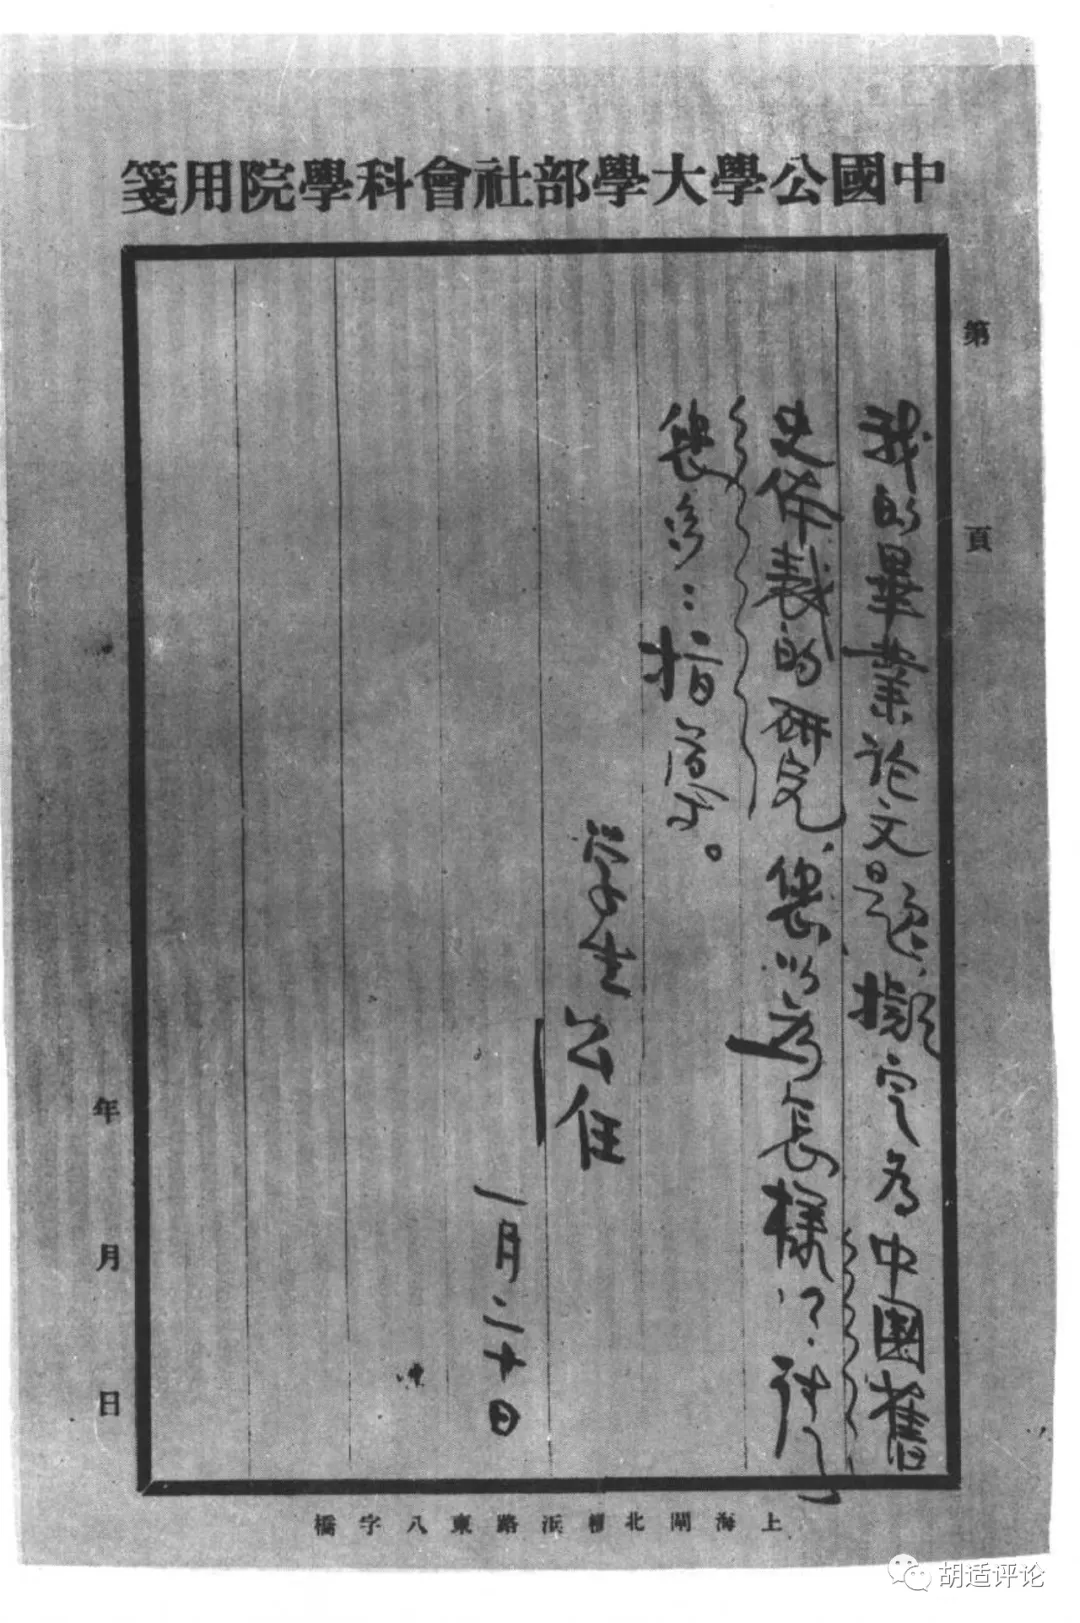 中國公學大學部社會科學院用箋
第　頁
我的畢業论文题、擬定為中國舊
史体裁的研究、您以為怎樣？请
您多：指導。
学生 公任
一月二十日
年　月　日
上海閘北橫浜路東八字橋
胡适评论